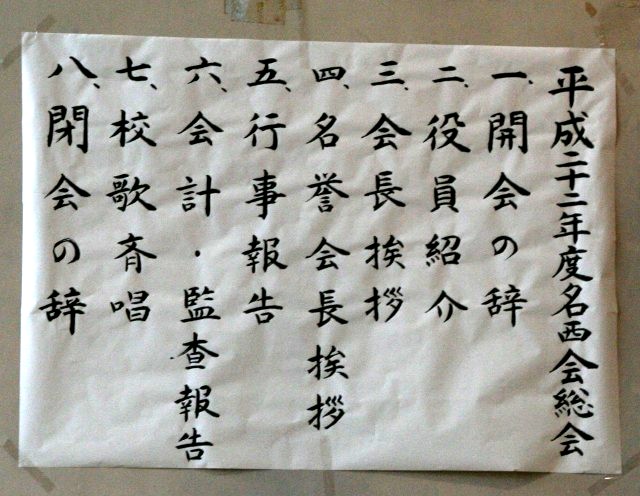 平成二十二年度名西会総会
一、開会の辞
二、役員紹介
三、会長挨拶
四、名誉会長挨拶
五、行事報告
六、会計・監査報告
七、校歌斉唱
八、閉会の辞